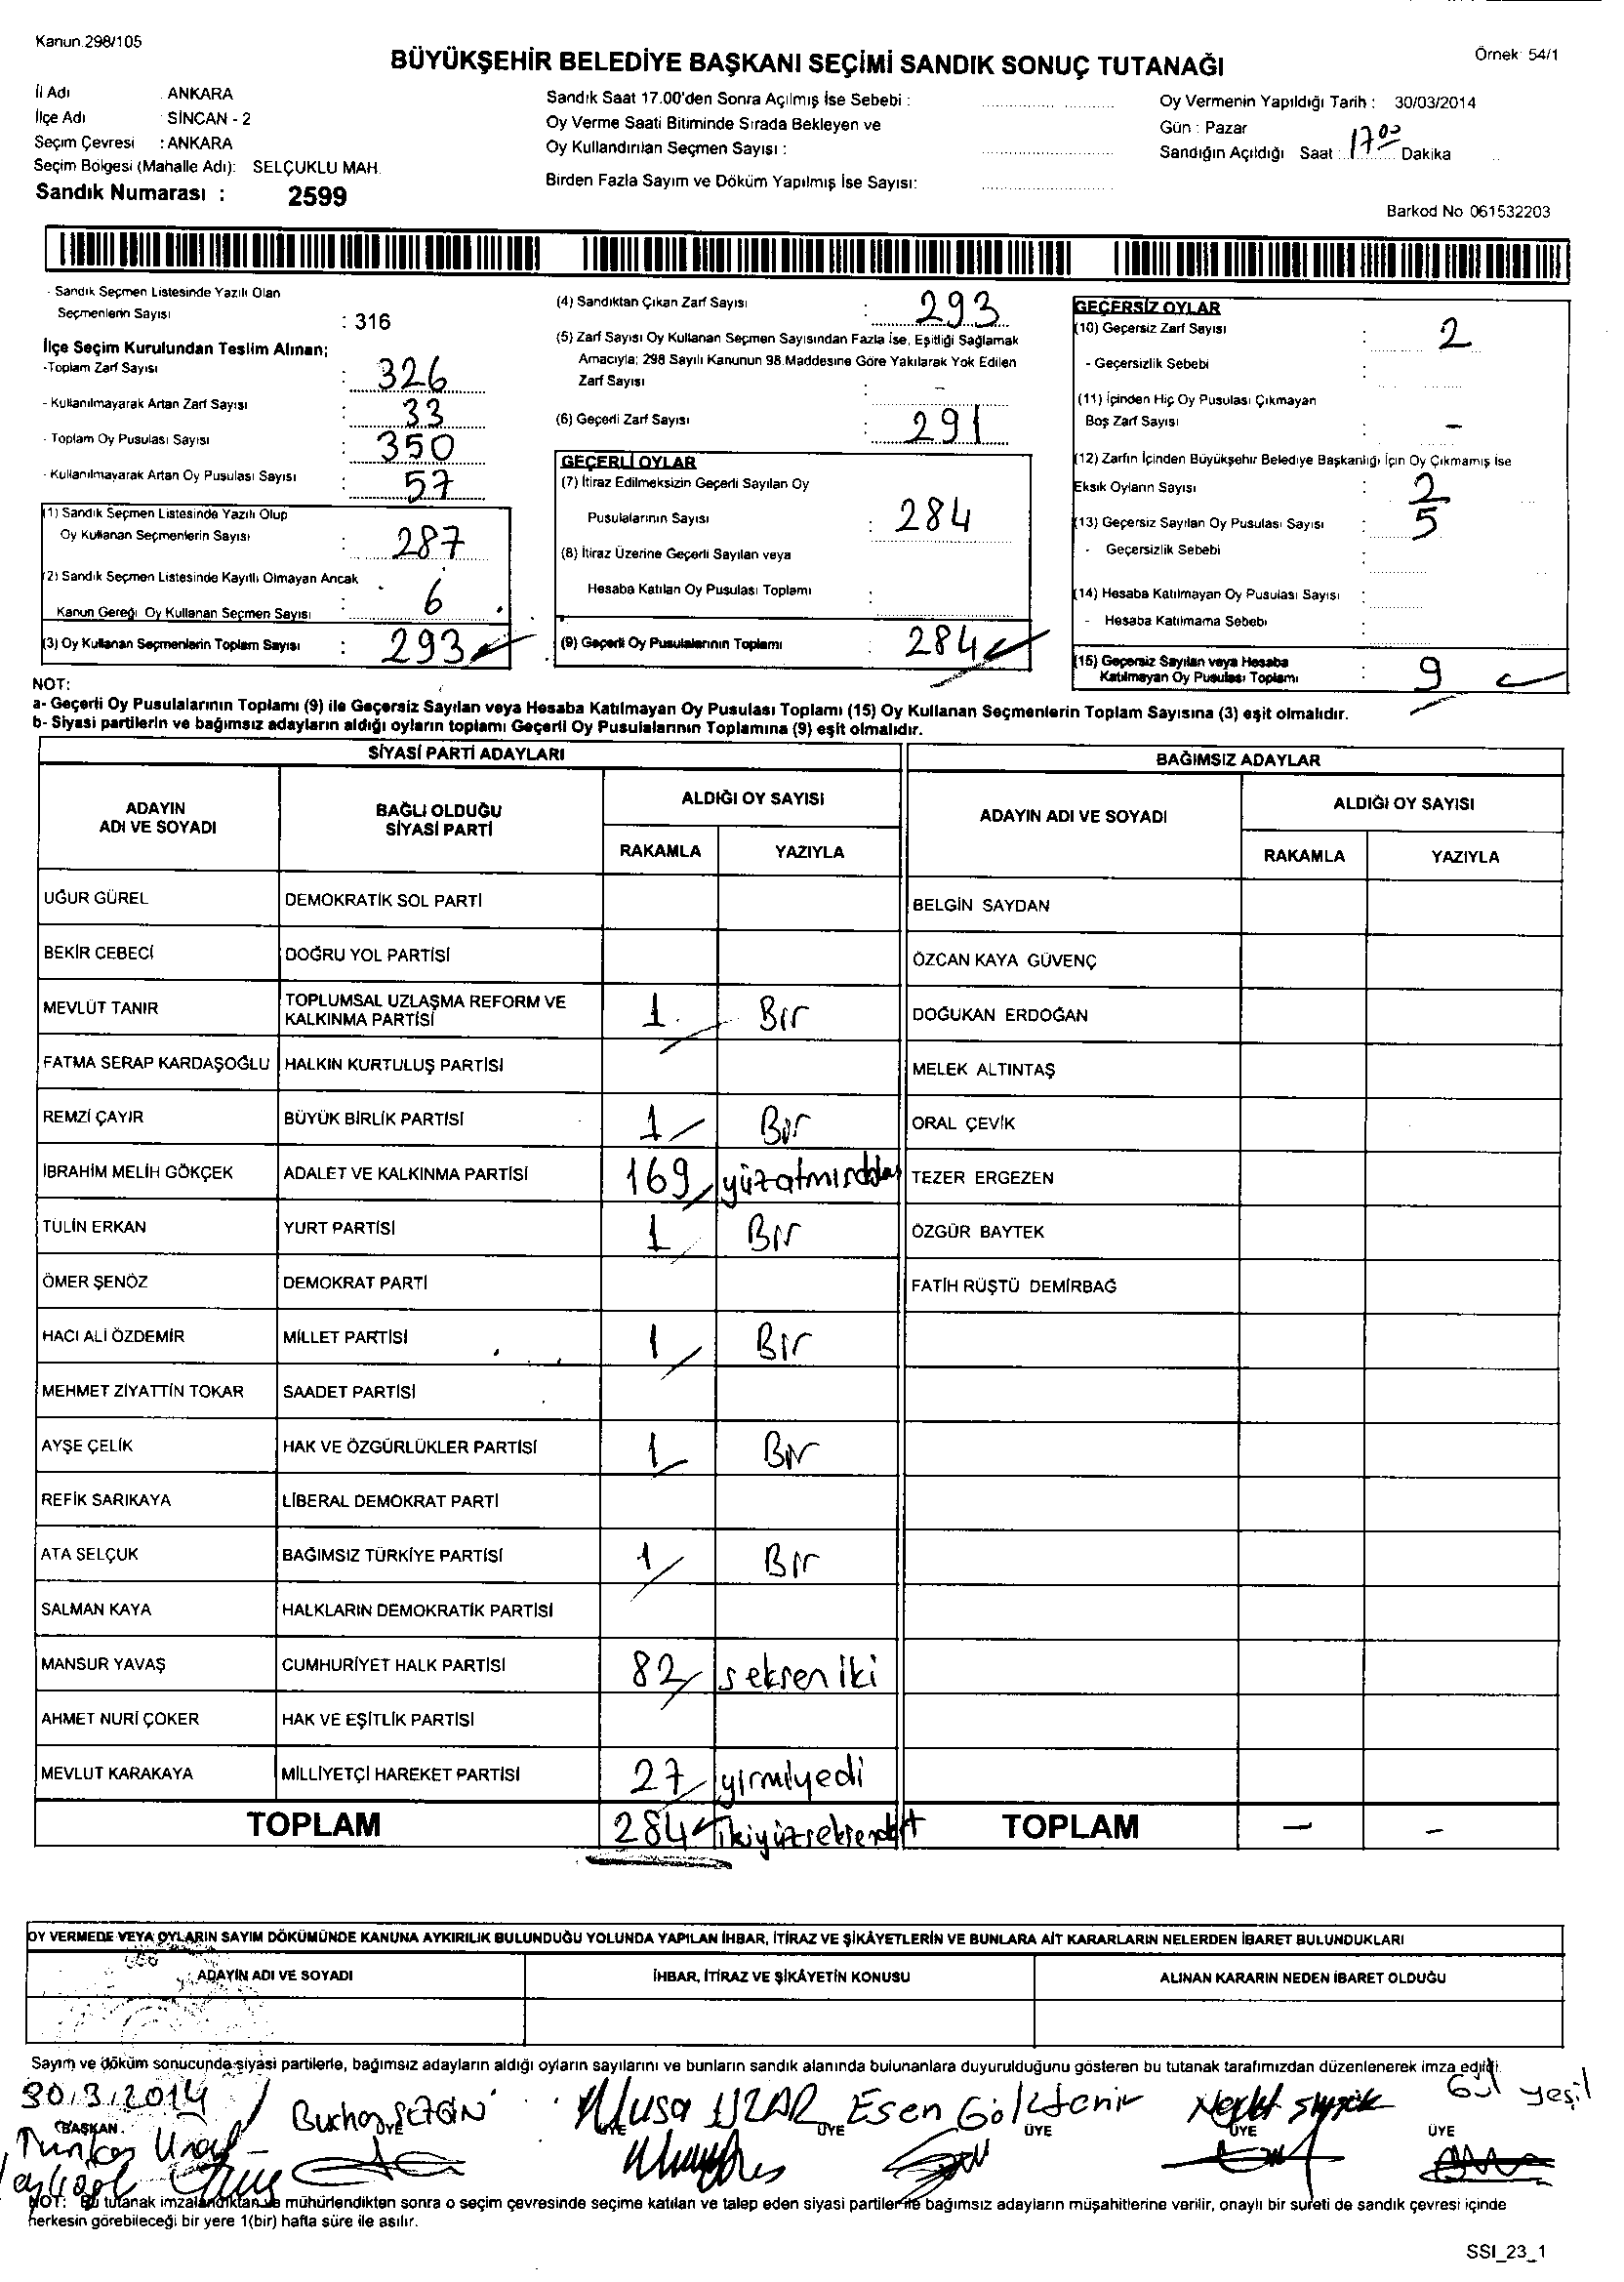 Kanun.298/105
BÜYÜKŞEHİR BELEDİYE BAŞKANI SEÇİMİ SANDIK SONUÇ TUTANAĞI
Örnek: 54/1
İl Adı : ANKARA
İlçe Adı : SİNCAN - 2
Seçim Çevresi : ANKARA
Seçim Bölgesi (Mahalle Adı): SELÇUKLU MAH.
Sandık Numarası : 2599
Sandık Saat 17.00'den Sonra Açılmış İse Sebebi :
Oy Verme Saati Bitiminde Sırada Bekleyen ve
Oy Kullandırılan Seçmen Sayısı :
Birden Fazla Sayım ve Döküm Yapılmış İse Sayısı:
Oy Vermenin Yapıldığı Tarih : 30/03/2014
Gün : Pazar
Sandığın Açıldığı Saat : 17 00 Dakika
Barkod No 061532203
- Sandık Seçmen Listesinde Yazılı Olan
Seçmenlerin Sayısı : 316
İlçe Seçim Kurulundan Teslim Alınan;
-Toplam Zarf Sayısı : 326
- Kullanılmayarak Artan Zarf Sayısı : 33
- Toplam Oy Pusulası Sayısı : 350
- Kullanılmayarak Artan Oy Pusulası Sayısı : 57
(1) Sandık Seçmen Listesinde Yazılı Olup
Oy Kullanan Seçmenlerin Sayısı : 287
(2) Sandık Seçmen Listesinde Kayıtlı Olmayan Ancak
Kanun Gereği Oy Kullanan Seçmen Sayısı : 6
(3) Oy Kullanan Seçmenlerin Toplam Sayısı : 293
(4) Sandıktan Çıkan Zarf Sayısı : 293
(5) Zarf Sayısı Oy Kullanan Seçmen Sayısından Fazla İse, Eşitliği Sağlamak
Amacıyla; 298 Sayılı Kanunun 98.Maddesine Göre Yakılarak Yok Edilen
Zarf Sayısı : -
(6) Geçerli Zarf Sayısı : 291
GEÇERLİ OYLAR
(7) İtiraz Edilmeksizin Geçerli Sayılan Oy
Pusulalarının Sayısı : 284
(8) İtiraz Üzerine Geçerli Sayılan veya
Hesaba Katılan Oy Pusulası Toplamı :
(9) Geçerli Oy Pusulalarının Toplamı : 284
GEÇERSİZ OYLAR
(10) Geçersiz Zarf Sayısı : 2
- Geçersizlik Sebebi :
(11) İçinden Hiç Oy Pusulası Çıkmayan
Boş Zarf Sayısı : -
(12) Zarfın İçinden Büyükşehir Belediye Başkanlığı İçin Oy Çıkmamış İse
Eksik Oyların Sayısı : 2
(13) Geçersiz Sayılan Oy Pusulası Sayısı : 5
- Geçersizlik Sebebi :
(14) Hesaba Katılmayan Oy Pusulası Sayısı :
- Hesaba Katılmama Sebebi :
(15) Geçersiz Sayılan veya Hesaba
Katılmayan Oy Pusulası Toplamı : 9
NOT:
a- Geçerli Oy Pusulalarının Toplamı (9) ile Geçersiz Sayılan veya Hesaba Katılmayan Oy Pusulası Toplamı (15) Oy Kullanan Seçmenlerin Toplam Sayısına (3) eşit olmalıdır.
b- Siyasi partilerin ve bağımsız adayların aldığı oyların toplamı Geçerli Oy Pusulalarının Toplamına (9) eşit olmalıdır.
SİYASİ PARTİ ADAYLARI
ADAYIN ADI VE SOYADI
BAĞLI OLDUĞU SİYASİ PARTİ
ALDIĞI OY SAYISI
RAKAMLA YAZIYLA
UĞUR GÜREL DEMOKRATİK SOL PARTİ
BEKİR CEBECİ DOĞRU YOL PARTİSİ
MEVLÜT TANIR TOPLUMSAL UZLAŞMA REFORM VE KALKINMA PARTİSİ 1 Bir
FATMA SERAP KARDAŞOĞLU HALKIN KURTULUŞ PARTİSİ
REMZİ ÇAYIR BÜYÜK BİRLİK PARTİSİ 1 Bir
İBRAHİM MELİH GÖKÇEK ADALET VE KALKINMA PARTİSİ 169
TÜLİN ERKAN YURT PARTİSİ 1 Bir
ÖMER ŞENÖZ DEMOKRAT PARTİ
HACI ALİ ÖZDEMİR MİLLET PARTİSİ 1 Bir
MEHMET ZİYATTİN TOKAR SAADET PARTİSİ
AYŞE ÇELİK HAK VE ÖZGÜRLÜKLER PARTİSİ 1 Bir
REFİK SARIKAYA LİBERAL DEMOKRAT PARTİ
ATA SELÇUK BAĞIMSIZ TÜRKİYE PARTİSİ 1 Bir
SALMAN KAYA HALKLARIN DEMOKRATİK PARTİSİ
MANSUR YAVAŞ CUMHURİYET HALK PARTİSİ 82 seksen iki
AHMET NURİ ÇOKER HAK VE EŞİTLİK PARTİSİ
MEVLUT KARAKAYA MİLLİYETÇİ HAREKET PARTİSİ 27 yirmiyedi
TOPLAM 284 ikiyüzseksendört
BAĞIMSIZ ADAYLAR
ADAYIN ADI VE SOYADI
ALDIĞI OY SAYISI
RAKAMLA YAZIYLA
BELGİN SAYDAN
ÖZCAN KAYA GÜVENÇ
DOĞUKAN ERDOĞAN
MELEK ALTINTAŞ
ORAL ÇEVİK
TEZER ERGEZEN
ÖZGÜR BAYTEK
FATİH RÜŞTÜ DEMİRBAĞ
TOPLAM - -
OY VERMEDE VEYA OYLARIN SAYIM DÖKÜMÜNDE KANUNA AYKIRILIK BULUNDUĞU YOLUNDA YAPILAN İHBAR, İTİRAZ VE ŞİKÂYETLERİN VE BUNLARA AİT KARARLARIN NELERDEN İBARET BULUNDUKLARI
ADAYIN ADI VE SOYADI
İHBAR, İTİRAZ VE ŞİKÂYETİN KONUSU
ALINAN KARARIN NEDEN İBARET OLDUĞU
Sayım ve döküm sonucunda siyasi partilerle, bağımsız adayların aldığı oyların sayılarını ve bunların sandık alanında bulunanlara duyurulduğunu gösteren bu tutanak tarafımızdan düzenlenerek imza edildi.
30.3.2014
Musa UZAR Esen Gökdemir Gül yeşil
BAŞKAN ÜYE ÜYE ÜYE ÜYE ÜYE
NOT: Bu tutanak imzalandıktan ve mühürlendikten sonra o seçim çevresinde seçime katılan ve talep eden siyasi partiler ile bağımsız adayların müşahitlerine verilir, onaylı bir sureti de sandık çevresi içinde
herkesin görebileceği bir yere 1(bir) hafta süre ile asılır.
SSI_23_1